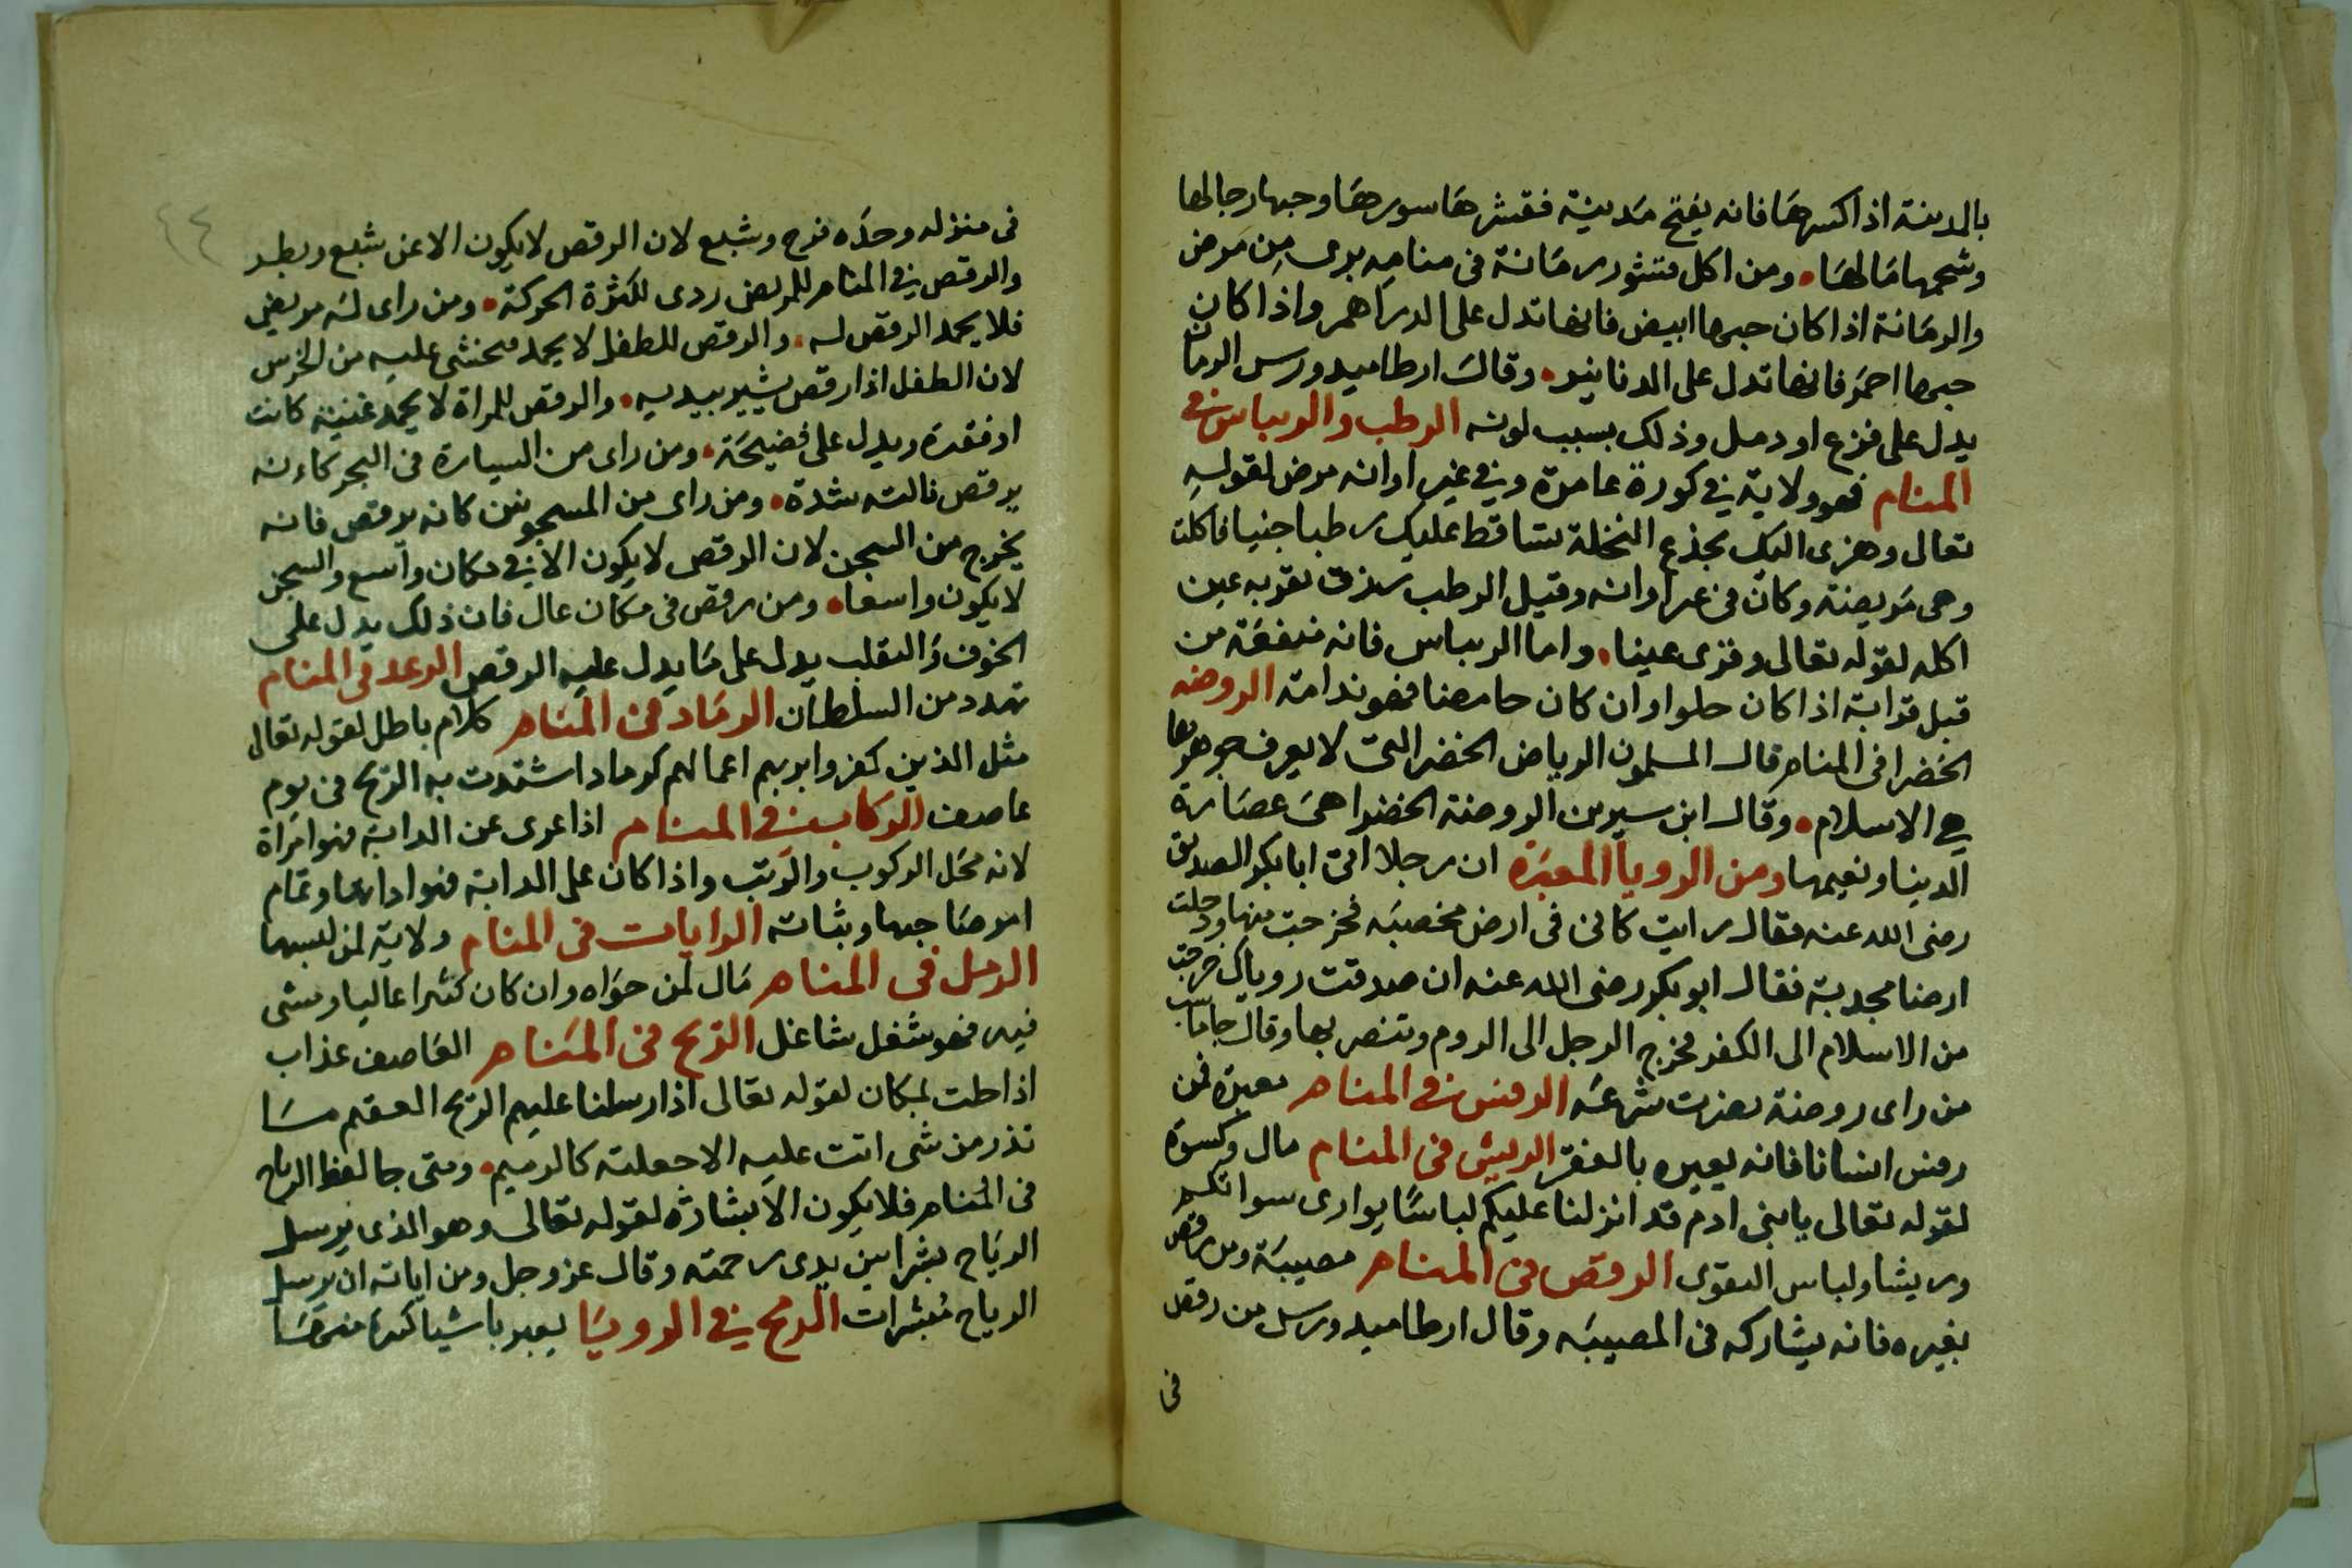 بالمدينة اذا كسرها فانه يفتح مدينة فقشرها سورها وحبها رجالها
وشحمها مالها • ومن اكل قشور رمانة في منامه برى من مرض
والرمانة اذا كان حبها ابيض فانها تدل على الدراهم واذا كان
حبها احمر فانها تدل على الدنانير • وقال ارطاميدورس الرمان
يدل على فزع او دمل وذلك بسبب لونه الرطب والريباس في
المنام فهو ولاية في كورة عامرة وفي غير اوانه مرض لقوله
تعالى وهزى اليك بجذع النخلة تساقط عليك رطبا جنيا فاكلت
وهى مريضة وكان في غير اوانه وقيل الرطب رزق تقر به عين
اكله لقوله تعالى وقرى عينا • واما الريباس فانه منفعة من
قبل قرابة اذا كان حلوا وان كان حامضا فهو ندامة الروضه
الخضرا في المنام قال المسلمون الرياض الخضر التى لا يعرف جوهرها
هي الاسلام • وقال ابن سيرين الروضة الخضرا هى عصارة
الدينا ونعيمها ومن الرويا المعبرة ان رجلا اتى ابا بكر الصديق
رضى الله عنه فقال رايت كانى في ارض مخصبه فخرجت منها ودخلت
ارضا مجدبة فقال ابو بكر رضى الله عنه ان صدقت روياك خرجت
من الاسلام الى الكفر فخرج الرجل الى الروم وتنصر بها وقال جاماسب
من راى روضة نضرت شرعه الرفس في المنام معيره فمن
رفس انسانا فانه يعيره بالفقر الريش في المنام مال وكسوة
لقوله تعالى يا بنى ادم قد انزلنا عليكم لباسا يوارى سواتكم
وريشا ولباس التقوى الرقص في المنام مصيبة ومن رقص
بغيره فانه يشاركه في المصيبه وقال ارطاميدورس من رقص
في
٤٤
في منزله وحده فرح وشبع لان الرقص لا يكون الا عن شبع وبطر
والرقص في المنام للمريض ردى لكثرة الحركة • ومن راى انه مريض
فلا يحمد الرقص له • والرقص للطفل لا يحمد فيخشى عليه من الخرس
لان الطفل اذا رقص يشير بيديه • والرقص للمراة لا يحمد غنية كانت
او فقيرة ويدل على فضيحة • ومن راى من السيارة في البحر كانه
يرقص نالته شدة • ومن راى من المسجونين كانه يرقص فانه
يخرج من السجن لان الرقص لا يكون الا في مكان واسع والسجن
لا يكون واسعا • ومن رقص في مكان عال فان ذلك يدل على
الخوف والتقلب يدل على ما يدل عليه الرقص الرعد في المنام
تهدد من السلطان الرماد في المنام كلام باطل لقوله تعالى
مثل الذين كفروا بربهم اعمالهم كرماد اشتدت به الريح في يوم
عاصف الركاب في المنام اذا عرى عن الدابة فهو امراة
لانه محل الركوب والوثب واذا كان على الدابة فهو اداتها وتمام
امر صاحبها وثباته الرايات في المنام ولاية لمن لبسها
الرمل في المنام مال لمن حواه وان كان كثيرا عاليا ومشى
فيه فهو شغل شاغل الريح في المنام العاصف عذاب
اذا حلت لمكان لقوله تعالى اذ ارسلنا عليهم الريح العقيم ما
تذر من شى اتت عليه الا جعلته كالرميم • ومتى جا لفظ الرياح
في المنام فلا يكون الا بشارة لقوله تعالى وهو الذى يرسل
الرياح بشرا بين يدى رحمته وقال عز وجل ومن اياته ان يرسل
الرياح مبشرات الرمح في الرويا يعبر باشيا كثيرة منها